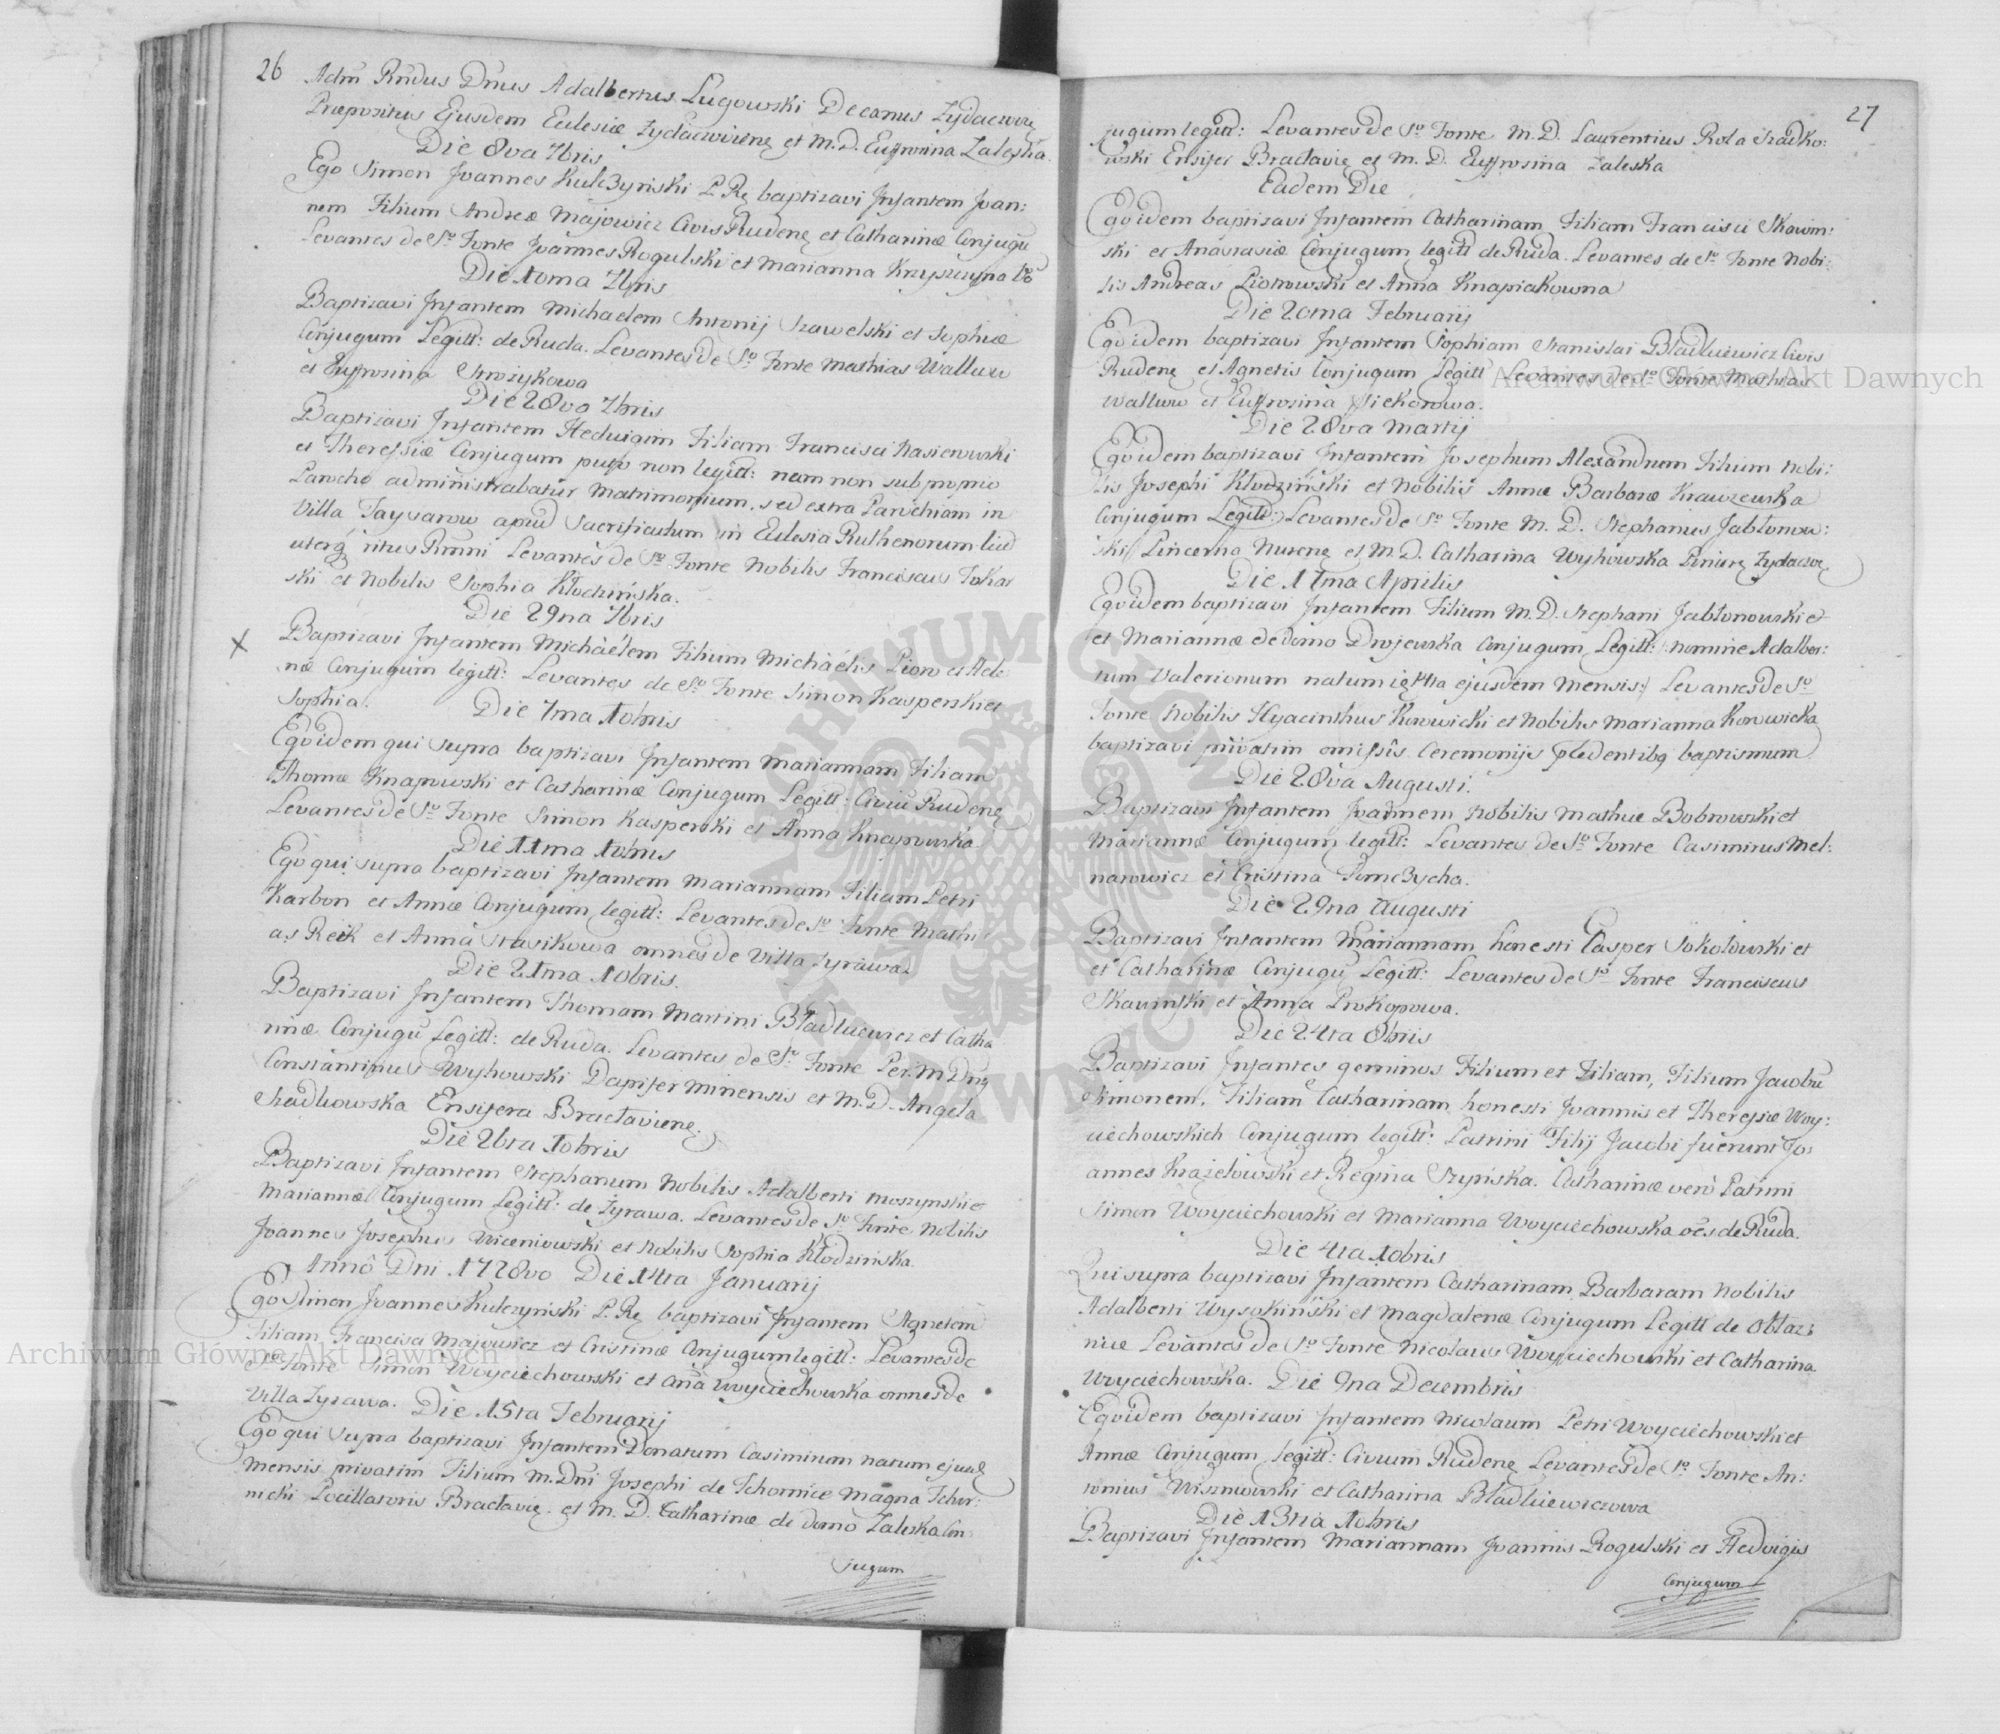 26
Adm Rndus Dnus Adalbertus Lugowski Decanus Zydaczovię
Præpositus Ejusdem Eclesiæ Zydaczovienę et M. D. Eufrosina Zaleska.
Die 8va 7bris
Ego Simon Joannes Kulczyński P. Rę baptizavi Infantem Joan:
nem Filium Andreæ Majowicz Civis Rudenę et Catharinæ Conjugū
Levantes de So Fonte Joannes Rogulski et Marianna Krzyszyna
Die 10ma 7bris
Baptizavi Infantem Michaelem Antonij Szawelski et Sophiæ
Conjugum Legitt: de Ruda. Levantes de So Fonte Mathias Walluw
et Eufrosina Strozykowa
Die 28va 7bris
Baptizavi Infantem Hedvigim Filiam Francisci Kasiewski
et Theressiæ Conjugum puto non legitt: nam non sub proprio
Parocho administrabatur Matrimonium, sed extra Parochiam in
Villa Taysarow apud Sacrificulum in Eclesia Ruthenorum licet
uterq ritus Rmni Levantes de So Fonte Nobilis Franciscus Tokar
ski et Nobilis Sophia Kłodzińska.
Die 29na 7bris
X
Baptizavi Infantem Michaélem Filium Michaélis Piow et Hele
næ Conjugum legitt: Levantes de So Fonte Simon Kasperski et
Sophia. Die 7ma 10bris
Eqvidem qui supra baptizavi Infantem Mariannam Filiam
Thomæ Knapowski et Catharinæ Conjugum Legitt: Civiū Rudenę
Levantes de So Fonte Simon Kasperski et Anna Knapowska
Die 11ma 10bris
Ego qui supra baptizavi Infantem Mariannam Filiam Petri
Karbon et Annæ Conjugum legitt: Levantes de So Fonte Mathi
as Reik et Anna Stasikowa omnes de Villa Zyrawa
Die 21ma 10bris.
Baptizavi Infantem Thomam Martini Bładluiewicz et Catha
rinæ Conjugū Legitt: de Ruda. Levantes de So Fonte Per. M Dnus
Constantinus Wyhowski Dapifer Minensis et M. D. Angela
Szadkowska Ensifera Bracłavienę.
Die 26ta 10bris
Baptizavi Infantem Stephanum Nobilis Adalberti Moszynski e
Mariannæ Conjugum Legitt: de Zyrawa. Levantes de So Fonte Nobilis
Joannes Josephus Niceniowski et Nobilis Sophia Kłodzińska
Anno Dni 1728vo Die 14ta Januarij
Ego Simon Joannes Kulczyński P. Rę baptizavi Infantem Agnetem
Filiam Francisci Majowicz et Cristinæ Conjugum legitt: Levantes de
So Fonte Simon Woyciechowski et Ana Woyciechowska omnes de
Villa Zyrawa. Die 15ta Februarij
Ego qui supra baptizavi Infantem Donatum Casimirum natum ejusdę
Mensis privatim Filium M. Dni Josephi de Tchornice Magna Tchor:
nicki Pocillatoris Bracłavię. et M. D. Catharinæ de domo Zaleska Con:
jugum
27
jugum legitt: Levantes de So Fonte M. D. Laurentius Rola Szadko:
wski Ensifer Bracłavię et M. D. Eufrosina Zaleska
Eadem Die
Eqvidem baptizavi Infantem Catharinam Filiam Francisci Skowin:
ski et Anastasiæ Conjugum legitt de Ruda. Levantes de So Fonte Nobi:
lis Andreas Piotrowski et Anna Knapiakowna
Die 20ma Februarij
Eqvidem baptizavi Infantem Sophiam Stanislai Bładluiewicz Civis
Rudenę et Agnetis Conjugum Legitt Levantes de So Fonte Mathias
Walluw et Eufrosina Siekorowa.
Die 28va Martij
Eqvidem baptizavi Infantem Josephum Alexandrum Filium Nobi:
lis Josephi Kłodziński et Nobilis Annæ Barbaræ Krawzewska
Conjugum Legitt: Levantes de So Fonte M. D. Stephanus Jabłonow:
ski Pincerna Nurenę et M. D. Catharina Wyhowska Pinirę Zydaczovę
Die 17ma Aprilis
Eqvidem baptizavi Infantem Filium M. D. Stephani Jabłonowski et
et Mariannæ de domo Drojewska Conjugum Legitt: nomine Adalber:
tum Valerionum natum 14ta ejusdem Mensis: Levantes de So
Fonte Nobilis Hyacinthus Korowicki et Nobilis Marianna Korowicka
baptizavi privatim omissis Ceremonijs pcedentibq baptismum
Die 28va Augusti.
Baptizavi Infantem Joannem Nobilis Mathiæ Bobrowski et
Mariannæ Conjugum legitt: Levantes de So Fonte Casimirus Mel:
narowicz et Cristina Tomczycha.
Die 29na Augusti
Baptizavi Infantem Mariannam honesti Casper Sokołowski et
et Catharinæ Conjugū Legitt: Levantes de So Fonte Franciscus
Skavinski et Anna Prokopowa.
Die 24ta 8bris
Baptizavi Infantes geminos Filium et Filiam, Filium Jacobū
Simonem, Filiam Catharinam honesti Joannis et Theressiæ Woy:
ciechowskich Conjugum legitt: Patrini Filij Jacobi fuerunt Jo:
annes Krażełowski et Regina Szyńska. Catharinæ verò Patrini
Simon Woyciechowski et Marianna Woyciechowska oēs de Ruda.
Die 4ta 10bris
Qui supra baptizavi Infantem Catharinam Barbaram Nobilis
Adalberti Wysokiński et Magdalenæ Conjugum Legitt de Obłaz:
nice Levantes de So Fonte Nicolaus Woyciechowski et Catharina
Woyciechowska. Die 9na Decembris
Eqvidem baptizavi Infantem Nicolaum Petri Woyciechowski et
Annæ Conjugum legitt: Civium Rudenę Levantes de So Fonte An:
tonius Wisznowski et Catharina Bładluiewiczowa
Die 13tia 10bris
Baptizavi Infantem Mariannam Joannis Rogulski et Hedvigis
Conjugum
Archiwum Główne Akt Dawnych
Archiwum Główne Akt Dawnych